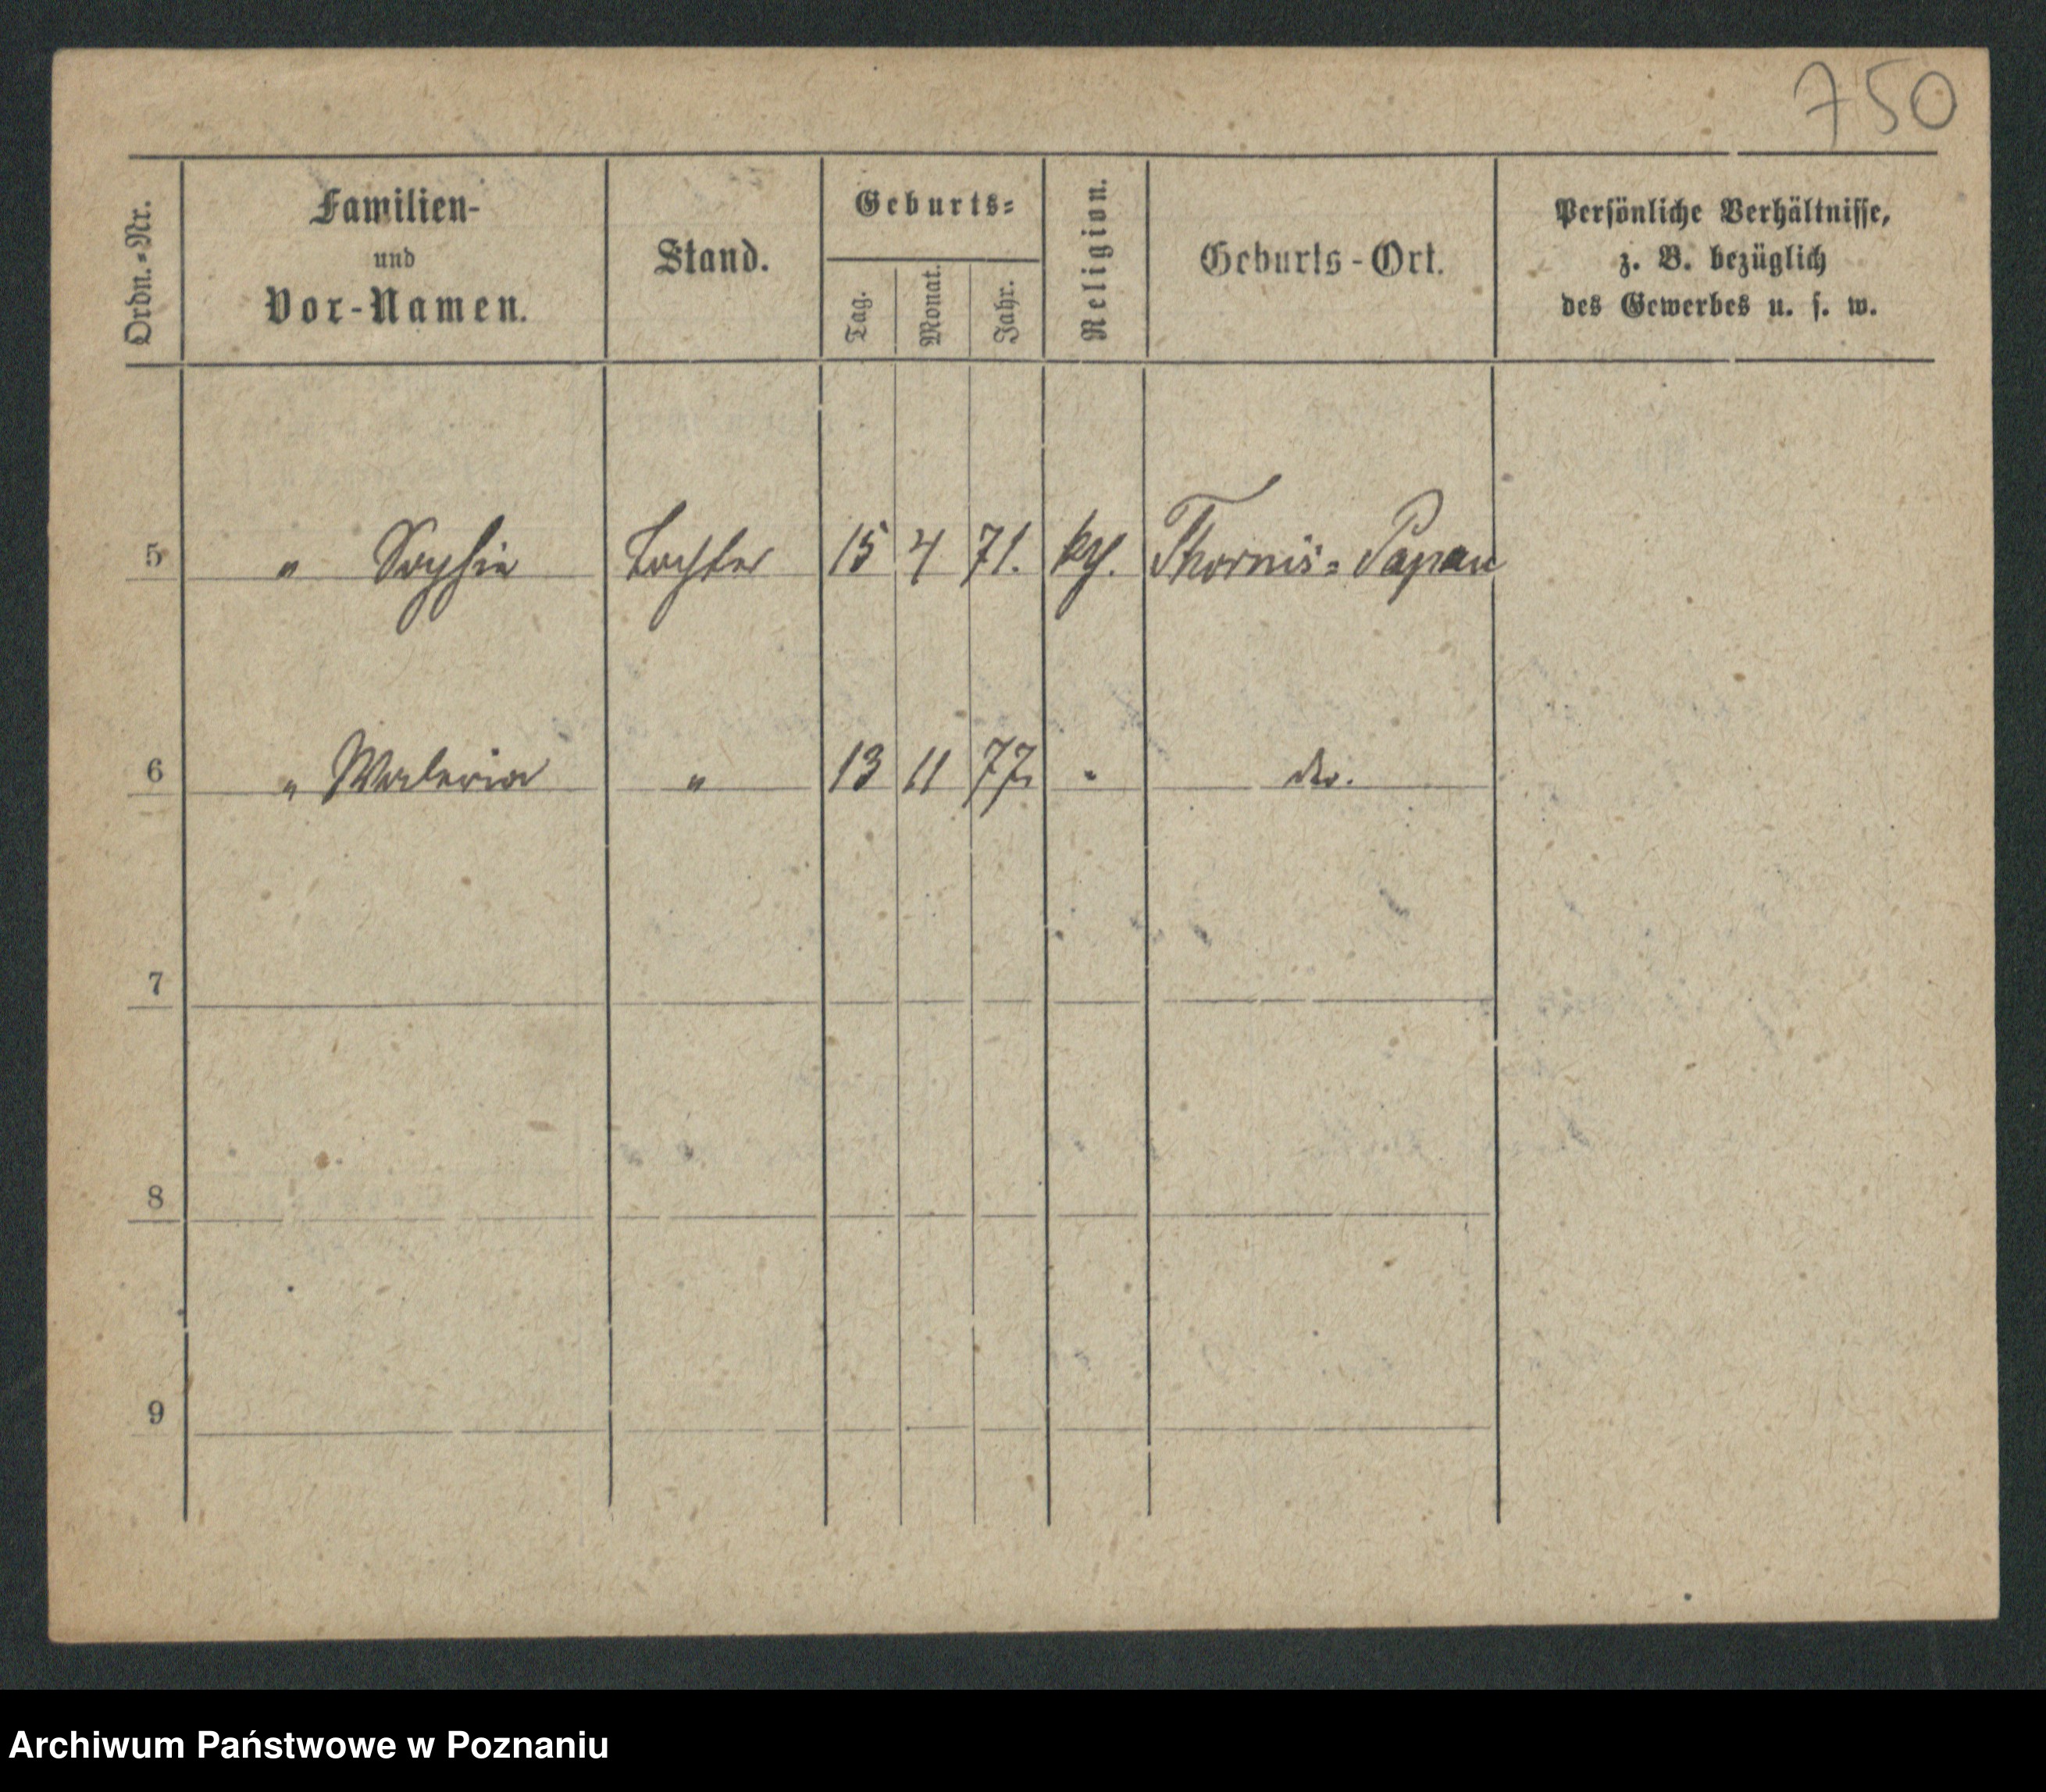 750
Ordn.-Nr. Familien- und Vor-Namen. Stand. Geburts- Tag. Monat. Jahr. Religion. Geburts-Ort. Persönliche Verhältnisse, z. B. bezüglich des Gewerbes u. s. w.
5 " Sophie Tochter 15 4 71. Thornis- Papau
6 " Waleria " 13 11 77. " do.
7
8
9
Archiwum Państwowe w Poznaniu